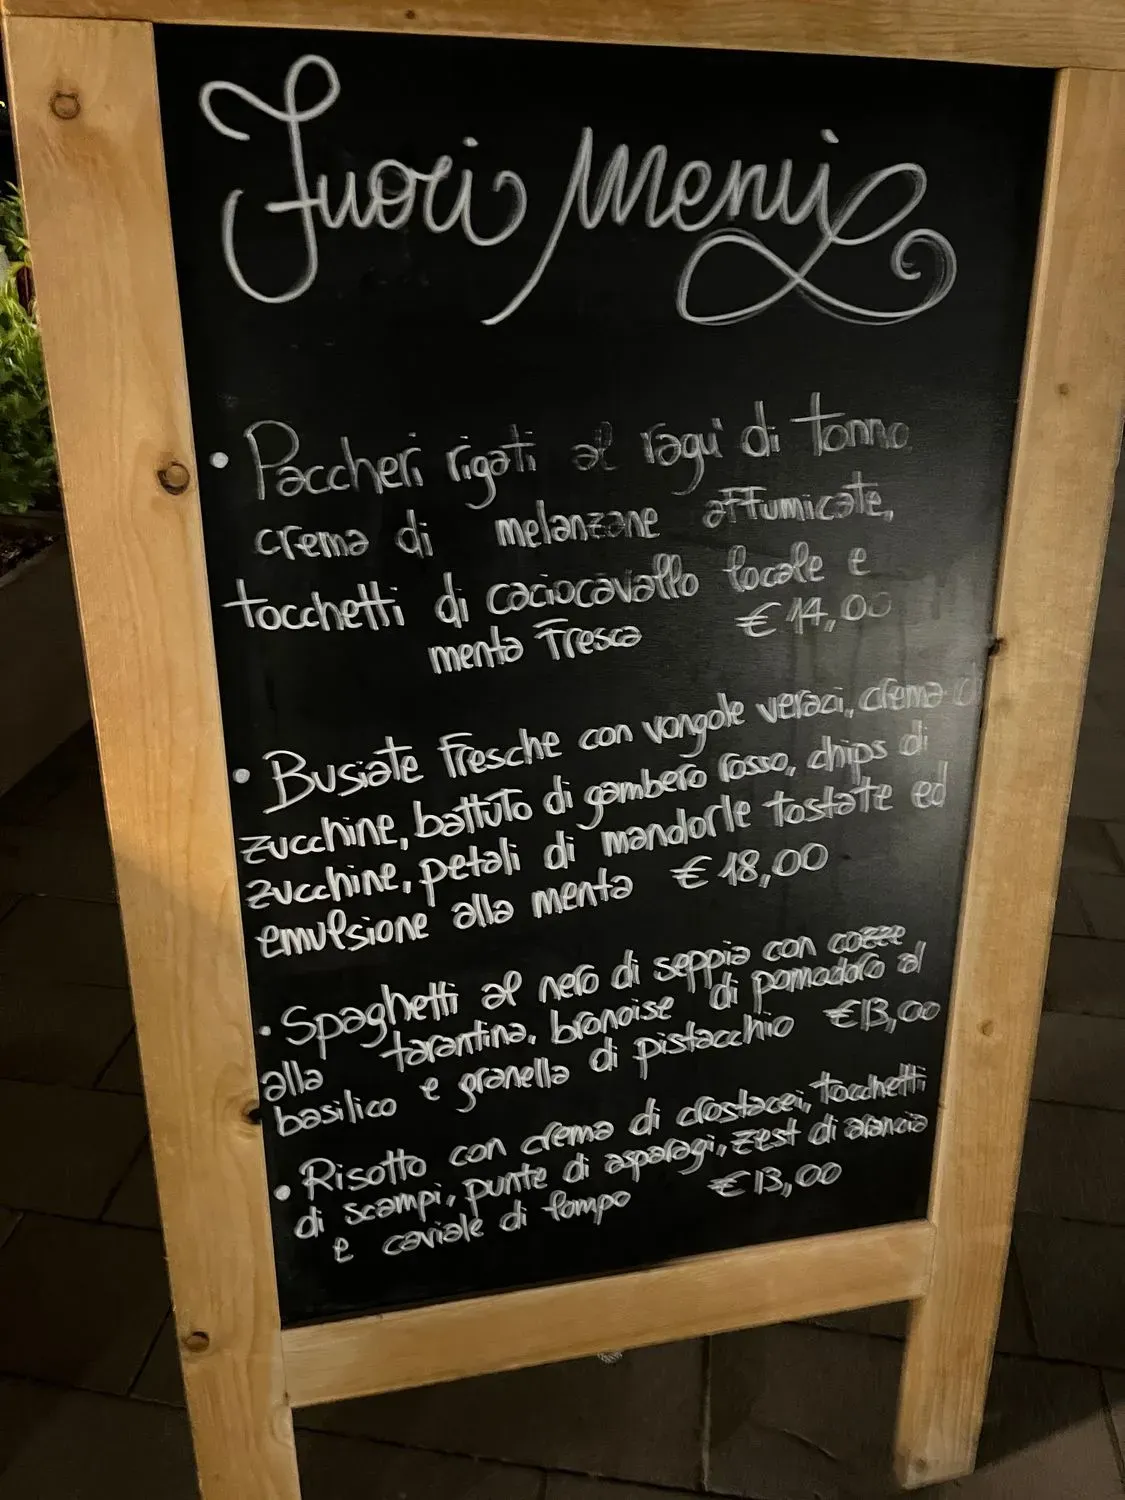 Fuori Menù
• Paccheri rigati al ragù di tonno
crema di melanzane affumicate,
tocchetti di caciocavallo locale e
menta fresca € 14,00
• Busiate fresche con vongole veraci, crema di
zucchine, battuto di gambero rosso, chips di
zucchine, petali di mandorle tostate ed
emulsione alla menta € 18,00
• Spaghetti al nero di seppia con cozze
alla tarantina, bronoise di pomodoro al
basilico e granella di pistacchio € 13,00
• Risotto con crema di crostacei, tocchetti
di scampi, punte di asparagi, zest di arancia
e caviale di lompo € 13,00